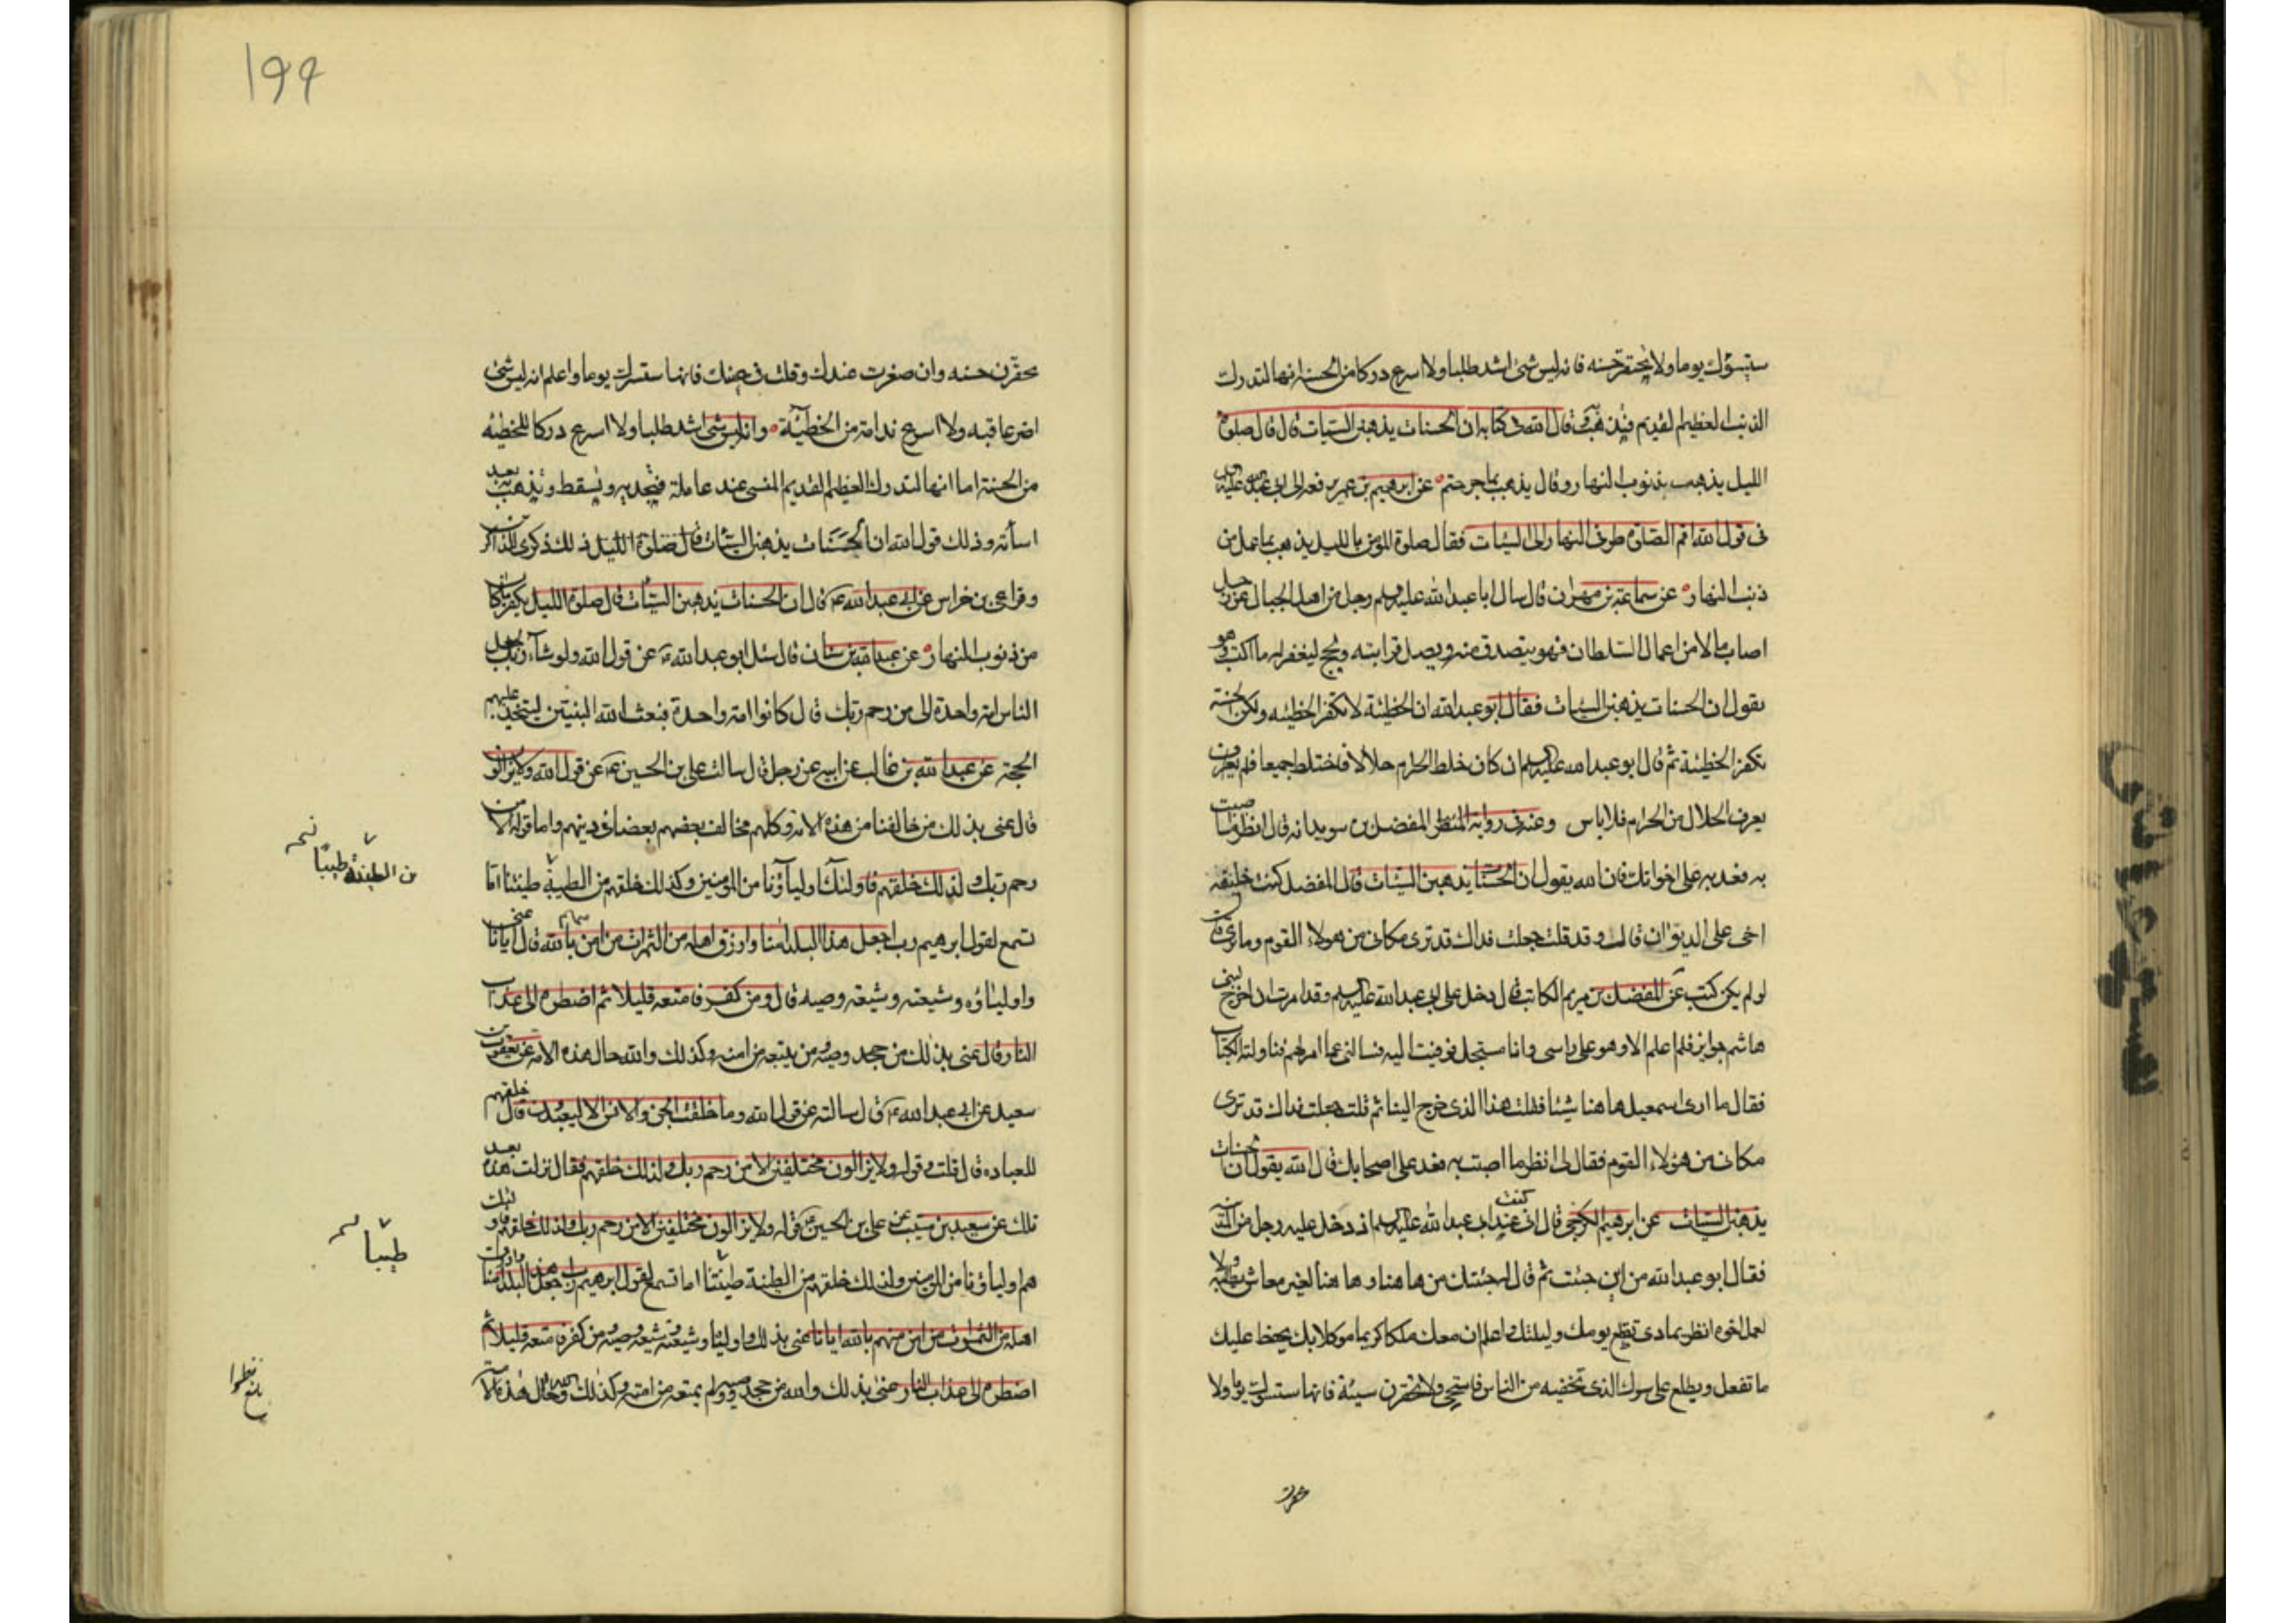 ستسؤك يوما ولا تحتقر حسنه فانه ليس شئ اشد طلبا ولا اسرع دركا من الحسنة انها لتدرك
الذنب العظيم القديم فيذهب قال الله فى كتابه ان الحسنات يذهبن السيات قال قال صلوة
الليل يذهب بذنوب النهار وقال يذهب بما جرحتم عن ابرهيم بن عمر رفعه الى ابى عبد الله عليه
فى قول الله اقم الصلوة طرفى النهار الى السيات فقال صلوة المؤمن بالليل يذهب بما عمل من
ذنب النهار عن سماعة بن مهران قال سال ابا عبد الله عليه السلم رجل من اهل الجبال عن رجل
اصاب مالا من اعمال السلطان فهو يتصدق منه ويصل قرابته ويحج ليغفر له ما اكتسب وهو
يقول ان الحسنات يذهبن السيات فقال ابو عبد الله ان الخطيئة لا تكفر الخطيئه ولكن الحسنة
تكفر الخطيئة ثم قال ابو عبد الله عليه السلم ان كان خلط الحرام حلالا فاختلط جميعا فلم يعرف
يعرف الحلال من الحرام فلا باس وعنه فى رواية المفضل بن سويد انه قال انظر ما اصبت
به فعد به على اخوانك فان الله يقول ان الحسنات يذهبن السيات قال المفضل كنت خليفة
اخى على الديوان قال وقد قلت جعلت فداك قد ترى مكانى من هولاء القوم وما ترى قال
لو لم يكن كتب عن المفضل بن مريم الكاتب قال دخل على ابى عبد الله عليه السلم وقد امرت ان اخرج لبنى
هاشم جوايز فلم اعلم الا وهو على راسى وانا مستجل فوثبت اليه فسالنى عما امر لهم فناولته الكتاب
فقال ما ارى اسمعيل هاهنا شيئا فقلت هذا الذى خرج الينا ثم قلت جعلت فداك قد ترى
مكانى من هؤلاء القوم فقال لى انظر ما اصبت به فعد على اصحابك فان الله يقول ان الحسنات
يذهبن السيات عن ابرهيم الكرخى قال انى كنت عند ابى عبد الله عليه السلم اذ دخل عليه رجل من المدينة
فقال ابو عبد الله من اين جئت ثم قال له جئتك من هاهنا وهاهنا لغير معاش تطلبه ولا
لعمل اخوه انظر بماذا تقطع يومك وليلتك واعلم ان معك ملكا كريما موكلا بك يحفظ عليك
ما تفعل ويطلع على سرك الذى تخفيه من الناس فاستحى ولا تحقرن سيئة فانها ستسؤك يوما ولا
تحقرن
۱۹۹
تحقرن حسنه وان صغرت عندك وقلت فى عينك فانها ستسرك يوما واعلم انه ليس شئ
اضر عاقبه ولا اسرع ندامة من الخطيئة وانه ليس شئ اشد طلبا ولا اسرع دركا للخطيئه
من الحسنة اما انها لتدرك العظيم القديم المنسى عند عامله فيجد به ويسقط ويذهب به بعد
اسائته وذلك قول الله ان الحسنات يذهبن السيات قال صلوة الليل ذلك ذكرى للذاكرين
وفى رواية بن خراش عن ابى عبد الله ع قال ان الحسنات يذهبن السيات قال صلوة الليل يكفر ما كان
من ذنوب النهار عن عبد الله بن سنان قال سئل ابو عبد الله ع عن قول الله ولو شاء ربك لجعل
الناس امة واحدة الى من رحم ربك قال كانوا امة واحدة فبعث الله النبيين ليتخذ عليهم
الحجة عن عبد الله بن غالب عن ابيه عن رجل قال سالت على بن الحسين ع عن قول الله ولا يزالون
قال عنى بذلك من خالفنا من هذه الامة وكلهم مخالف بعضهم بعضا فى دينهم واما قوله الا من
رحم ربك ولذلك خلقهم فاولئك اولياؤنا من المؤمنين وكذلك خلقهم من الطيبة طينتنا اما
تسمع لقول ابرهيم رب اجعل هذا البلد امنا وارزق اهله من الثمرات من امن منهم بالله قال ايانا عنى
واولياؤه وشيعته وشيعة وصيه قال ومن كفر فامتعه قليلا ثم اضطره الى عذاب
النار قال عنى بذلك من جحد وصيه ومن يتبعه من امته وكذلك والله حال هذه الامه عن يعقوب بن
سعيد عن ابى عبد الله ع قال سالته عن قول الله وما خلقت الجن والانس الا ليعبدون قال خلقهم
للعباده قال قلت وقوله ولا يزالون مختلفين الا من رحم ربك ولذلك خلقهم فقال نزلت هذه بعد
تلك عن سعيد بن مسيب عن على بن الحسين فى قوله ولا يزالون مختلفين الا من رحم ربك ولذلك خلقهم فاولئك
هم اولياؤنا من المؤمنين ولذلك خلقهم من الطينة طينتنا اما تسمع لقول ابرهيم رب اجعل هذا البلد امنا وارزق
اهله من الثمرات من امن منهم بالله ايانا عنى بذلك واولياء وشيعته وشيعة وصيه ومن كفر فامتعه قليلا ثم
اضطره الى عذاب النار عنى بذلك والله من جحد وصيه ولم يتبعه من امته وكذلك والله حال هذه الامة
من الطينة طيبا
طيبا